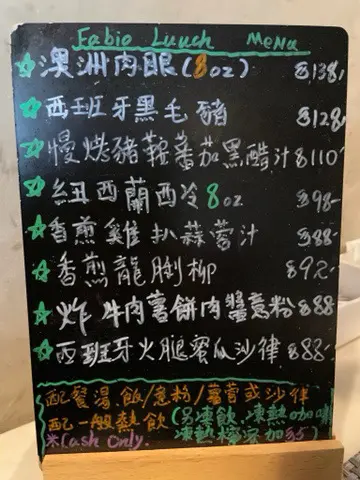 Fabio Lunch Menu
澳洲肉眼(8oz) $138-
西班牙黑毛豬 $128-
慢烤豬鞍蕃茄黑醋汁 $110-
紐西蘭西冷8oz $98-
香煎雞扒蒜蓉汁 $88-
香煎龍脷柳 $92-
炸牛肉薯餅肉醬意粉 $88
西班牙火腿蜜瓜沙律 $88-
配餐湯飯/意粉/薯蓉或沙律
配一般熱飲(另凍飲.凍熱咖啡
*Cash Only. 凍熱檸茶加$5)